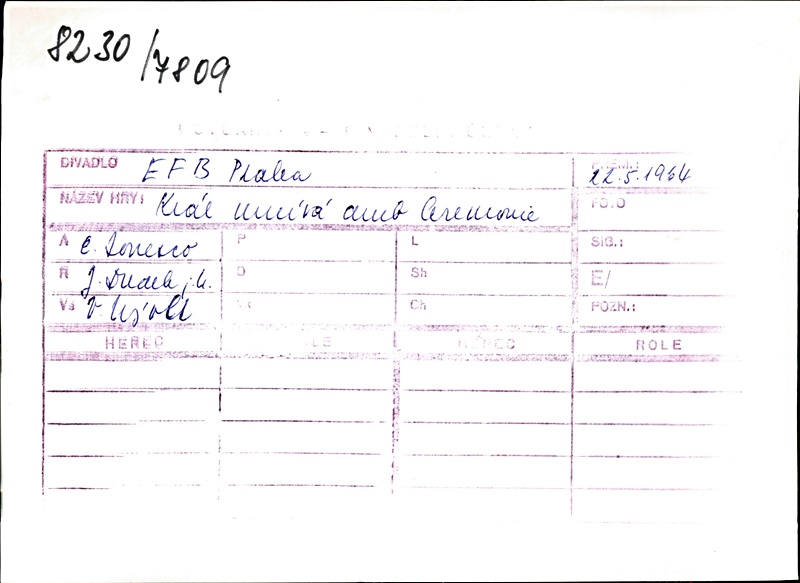 8230/7809
DIVADLO EFB Praha PREM.: 22.5.1964
NÁZEV HRY: Král umírá aneb Ceremonie FOTO
A E. Ionesco P L SIG.:
R J. Dudek j.h. D Sh E/
Vs V. Nývlt Ch POZN.:
HEREC ROLE HEREC ROLE